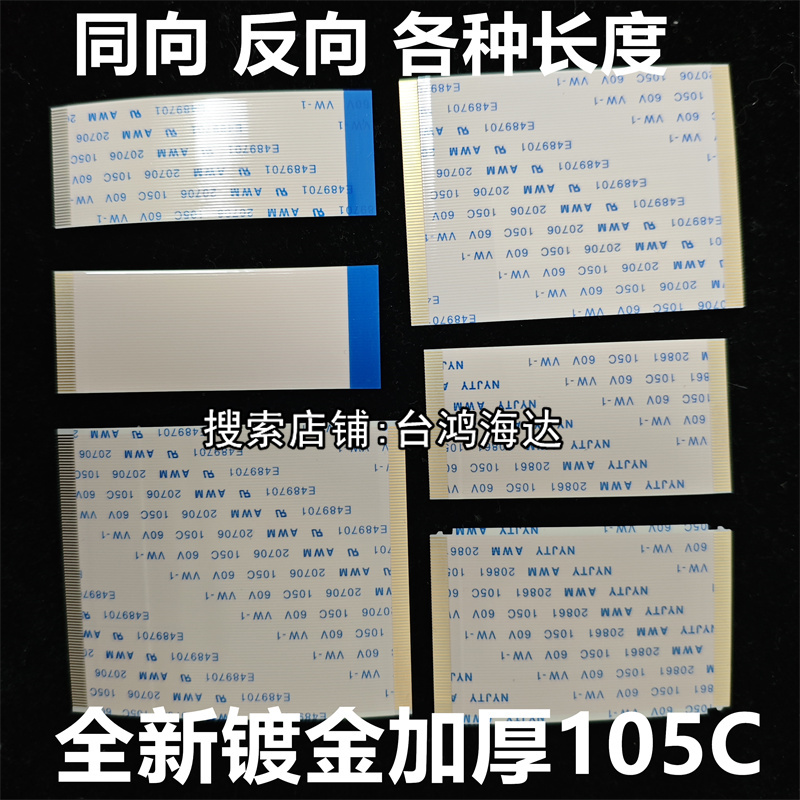 同向 反向 各种长度
E489701 AWM 20706 105C 60V VW-1
E489701 AWM 20706 105C 60V VW-1
搜索店铺:台鸿海达
NYJTY AWM 20861 105C 60V VW-1
E489701 AWM 20706 105C 60V VW-1
NYJTY AWM 20861 105C 60V VW-1
全新镀金加厚105C